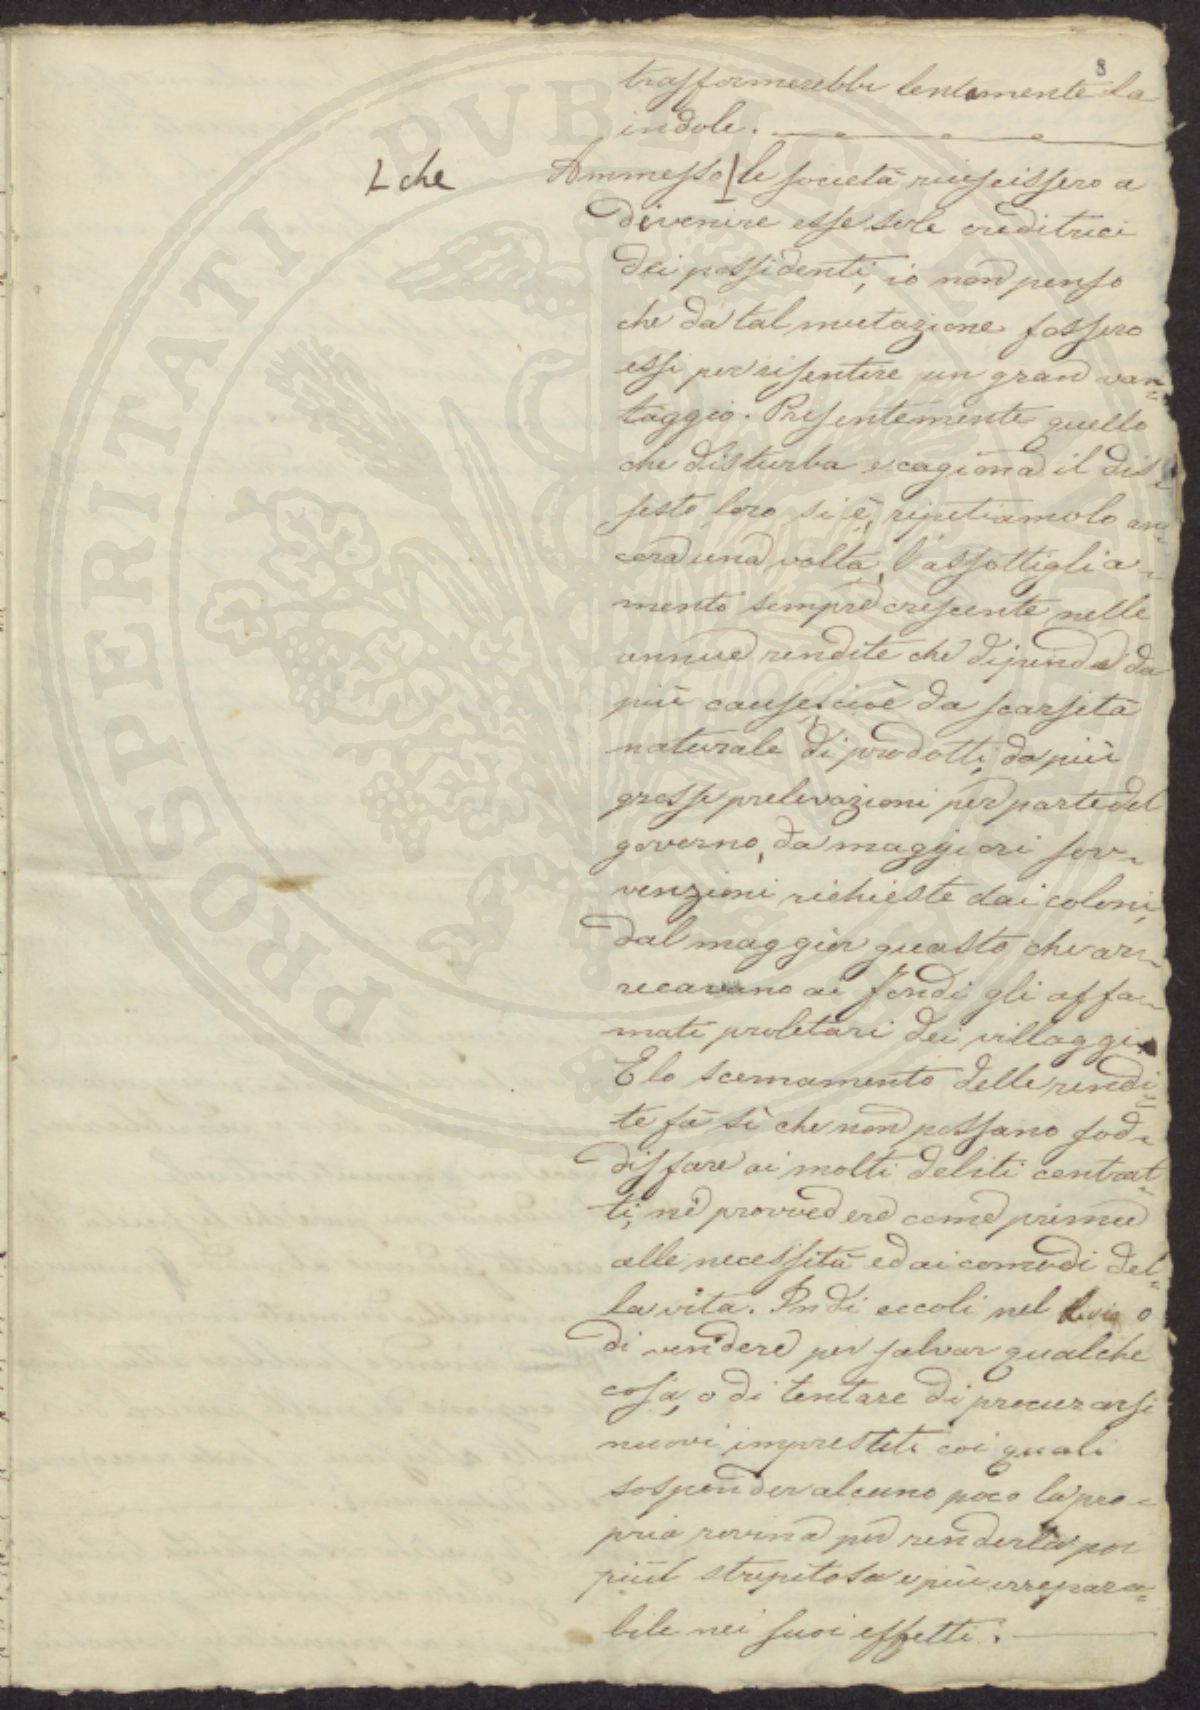 8
trasformerebbe lentamente la
indole.
L che
Ammesso le società riuscissero a
divenire esse sole creditrici
dei possidenti, io non penso
che da tal mutazione fossero
essi per risentire un gran van=
taggio. Presentemente quello
che disturba e cagiona il dis=
sesto loro si è, ripetiamolo an=
cora una volta, l'assottiglia=
mento sempre crescente nelle
annue rendite che dipende da
più cause, cioè da scarsità
naturale di prodotti, da più
grosse prelevazioni per parte del
governo, da maggiori sov=
venzioni richieste dai coloni,
dal maggior guasto che ar=
recavano ai fondi gli affa=
mati proletari dei villaggi.
E lo scemamento delle rendi=
te fa sì che non possano sod=
disfare ai molti debiti contrat=
ti, nè provvedere come prima
alle necessità ed ai comodi del=
la vita. Indi eccoli nel bivio o
di vendere per salvar qualche
cosa, o di tentare di procurarsi
nuovi imprestiti coi quali
sospender alcuno poco la pro=
pria rovina per renderla poi
più strepitosa e più irrepara=
bile nei suoi effetti.
PROSPERITATI PVBLICAE